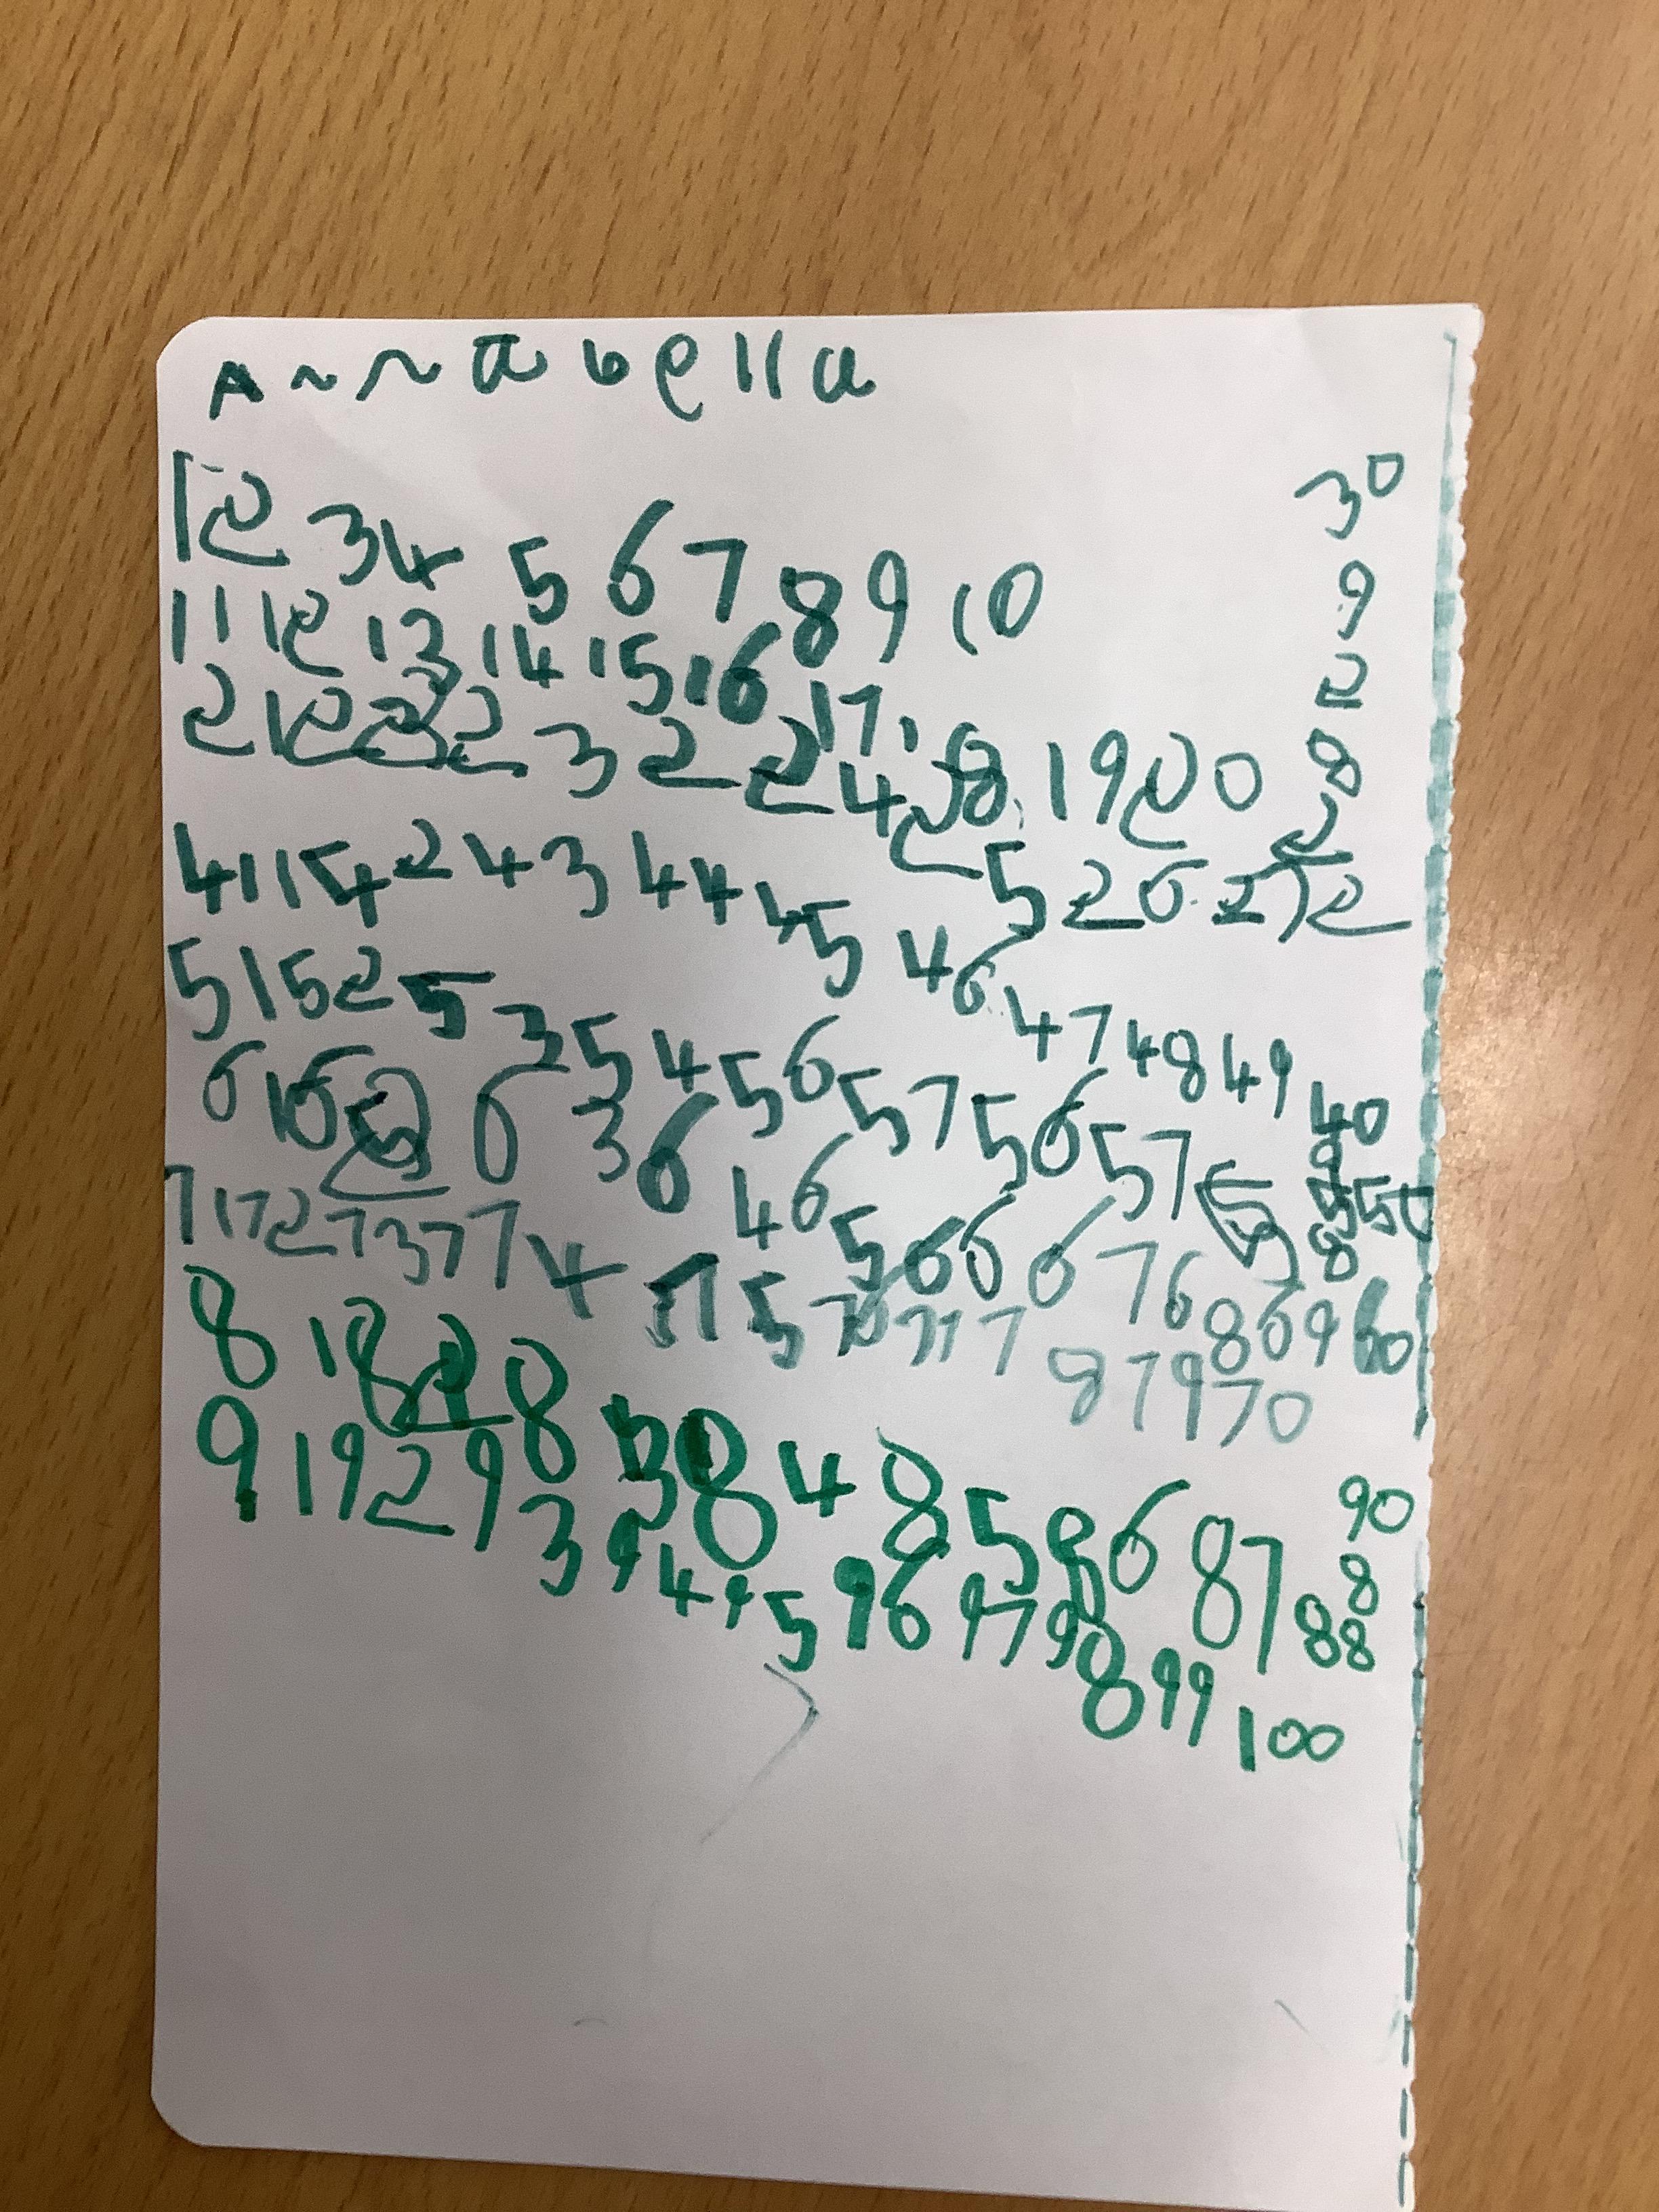 Annabella
1 2 3 4 5 6 7 8 9 10
11 12 13 14 15 16 17 18 19 20
21 22 23 24 25 26 27 28 29 30
41 42 43 44 45 46 47 48 49 40
51 52 53 54 56 57 56 57 58 50
61 62 63 64 65 66 67 68 69 60
71 72 73 74 75 77 78 79 70
81 82 83 84 85 86 87 88 90
91 92 93 94 95 96 97 98 99 100